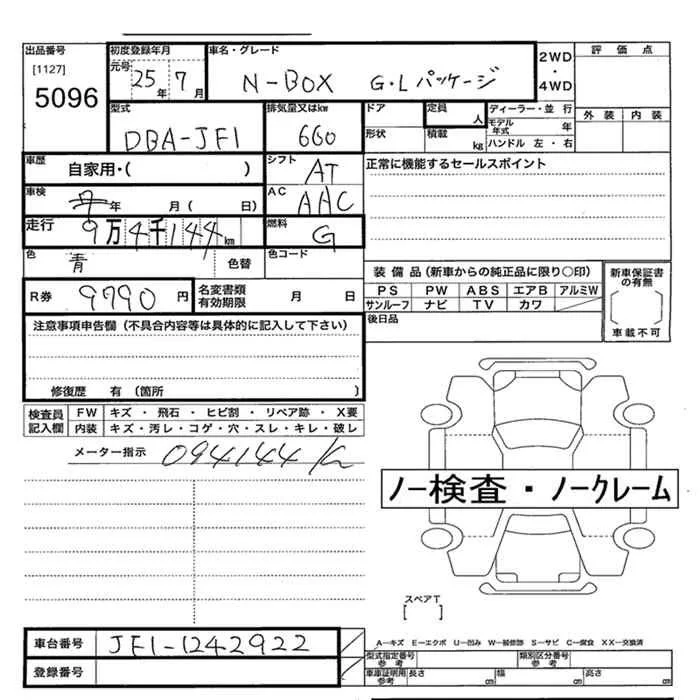 出品番号 初度登録年月 車名・グレード 2WD 評価点
[1127] 元号 25年 7月 N-BOX G・Lパッケージ ・
5096 4WD
型式 排気量又はkw ドア 定員 人 ディーラー・並行 外装 内装
DBA-JF1 660 形状 積載 kg モデル年式 年
ハンドル 左・右
車歴 自家用・( ) シフト AT 正常に機能するセールスポイント
車検 年 月( 日) AC AAC
走行 9万4千144km 燃料 G
色 青 色替 色コード
装備品(新車からの純正品に限り○印) 新車保証書の有無
R券 9790円 名変書類有効期限 月 日 PS PW ABS エアB アルミW
サンルーフ ナビ TV カワ
注意事項申告欄(不具合内容等は具体的に記入して下さい) 後日品 車載不可
修復歴 有(箇所 )
検査員記入欄 FW キズ・飛石・ヒビ割・リペア跡・X要
内装 キズ・汚レ・コゲ・穴・スレ・キレ・破レ
メーター指示 094144K
ノー検査・ノークレーム
スペアT
[ ]
車台番号 JF1-1242922 A−キズ E−エクボ U−凹み W−補修跡 S−サビ C−腐食 XX−交換済
型式指定番号参考 類別区分番号参考
登録番号 車庫証明用参考 長さ cm 幅 cm 高さ cm